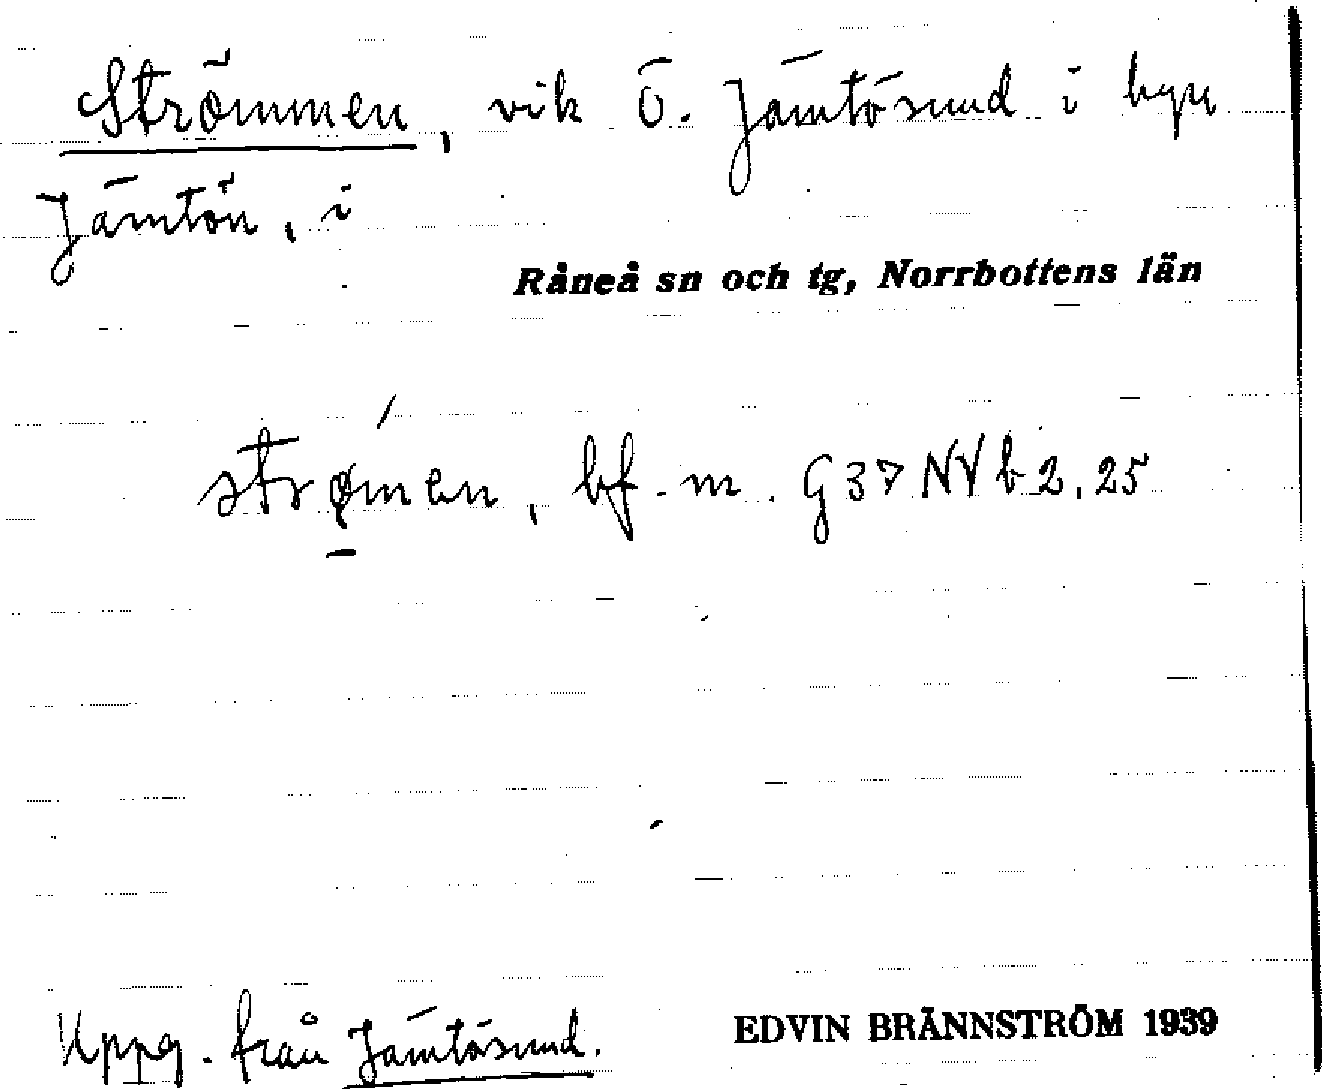 Strömmen, vik Ö. Jämtösund i byn
Jämtön, i
Råneå sn och tg, Norrbottens län
strǿ̱men, bf. m. G37NVb2,25
Uppg. från Jämtösund.
EDVIN BRÄNNSTRÖM 1939